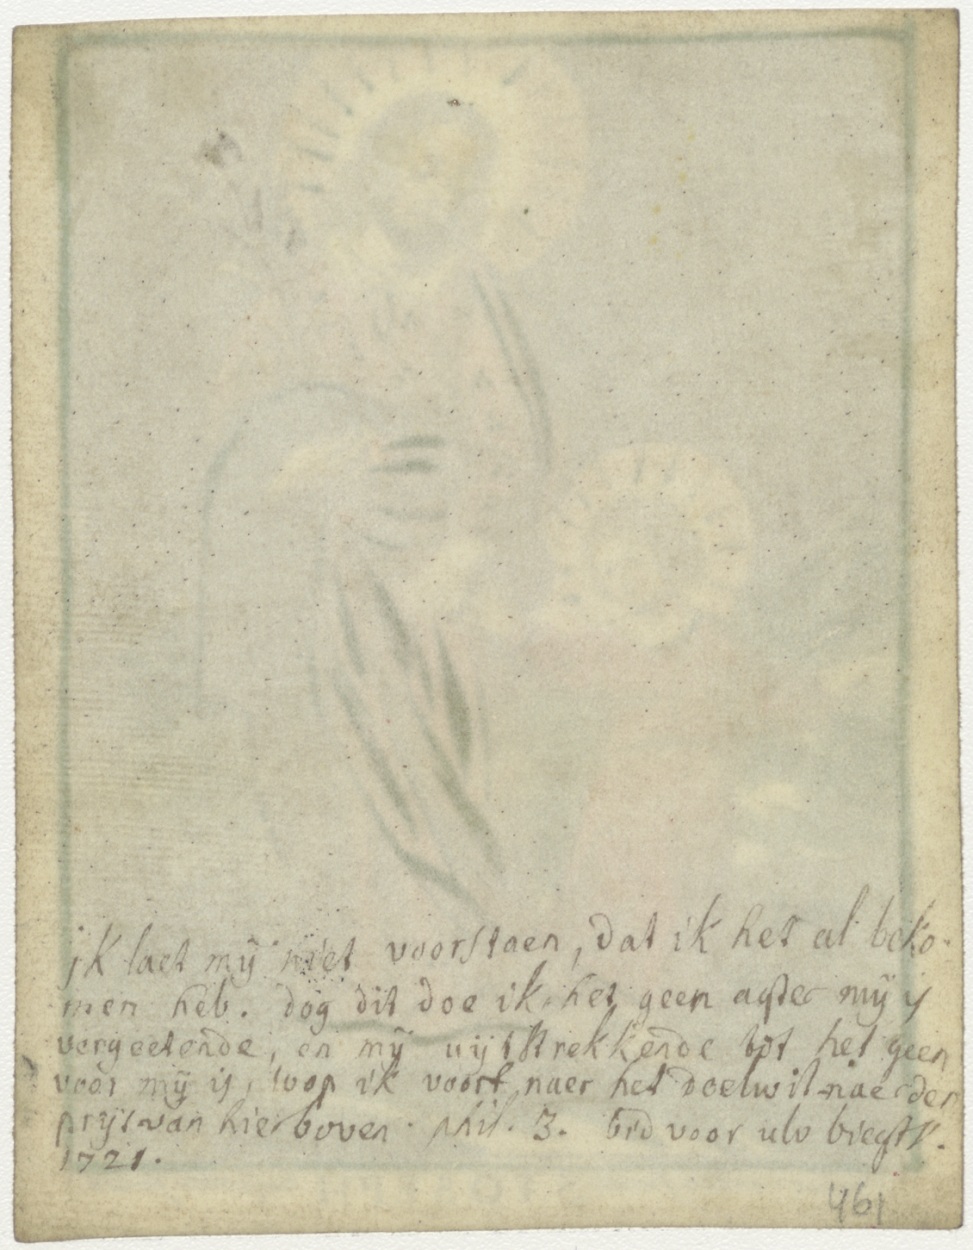 ik laet mÿ niet voorstaen, dat ik het al beko-
men heb. dog dit doe ik, het geen agter mÿ is
vergeetende, en mÿ uijtstrekkende tot het geen
voor mÿ is, loop ik voort naer het doelwit nae den
prijs van hier boven. phil. 3. bid voor ulv biegtk.
1721.
461